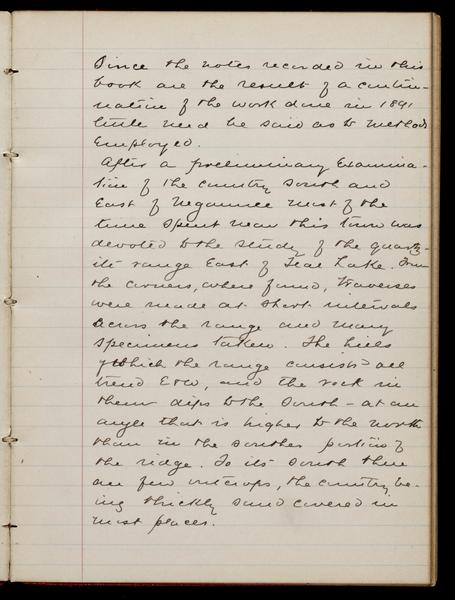 Since the notes recorded in this
book are the result of a contin-
uation of the work done in 1891
little need be said as to methods
employed.
After a preliminary examina-
tion of the country south and
East of Negaunee most of the
time spent near this town was
devoted to the study of the quartz-
ite range East of Teal Lake. From
the corners, where found, traverses
were made at short intervals
across the range and many
specimens taken. The hills
of which the range consists all
trend E & W, and the rock in
them dips to the South - at an
angle that is higher to the north
than in the souther portions of
the ridge. To its south there
are few outcrops, the country be-
ing thickly sand covered in
most places.